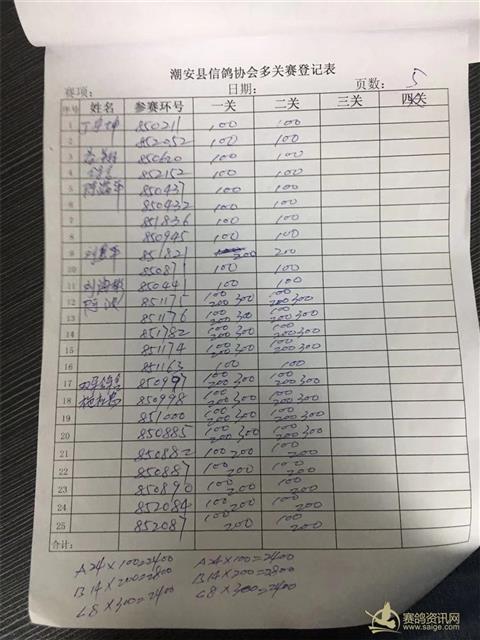 潮安县信鸽协会多关赛登记表
赛项： 日期： 页数：5
序号 姓名 参赛环号 一关 二关 三关 四关
1 850211 100 100
2 852052 100 100
3 850620 100 100
4 852152 100 100
5 850437 100 100
6 850432 100 100
7 851836 100 100
8 850945 100 100
9 851821 200 200
10 850871 100 100
11 850441 100 100
12 851175 100 200 300 100 200 300
13 851176 100 200 300 100 200 300
14 851782 100 200 300 100 200 300
15 851174 100 200 300 100 200 300
16 851163 100 100
17 850997 100 200 300 100 200 300
18 850998 100 200 300 100 200 300
19 851000 100 200 300 100 200 300
20 850885 100 200 300 100 200 300
21 850882 100 200 100 200
22 850887 100 200 100 200
23 850890 100 200 100 200
24 852084 100 200 100 200
25 852087 100 200 100 200
合计：
A24×100=2400 A24×100=2400
B14×200=2800 B14×200=2800
C8×300=2400 C8×300=2400
赛鸽资讯网
www.saige.com